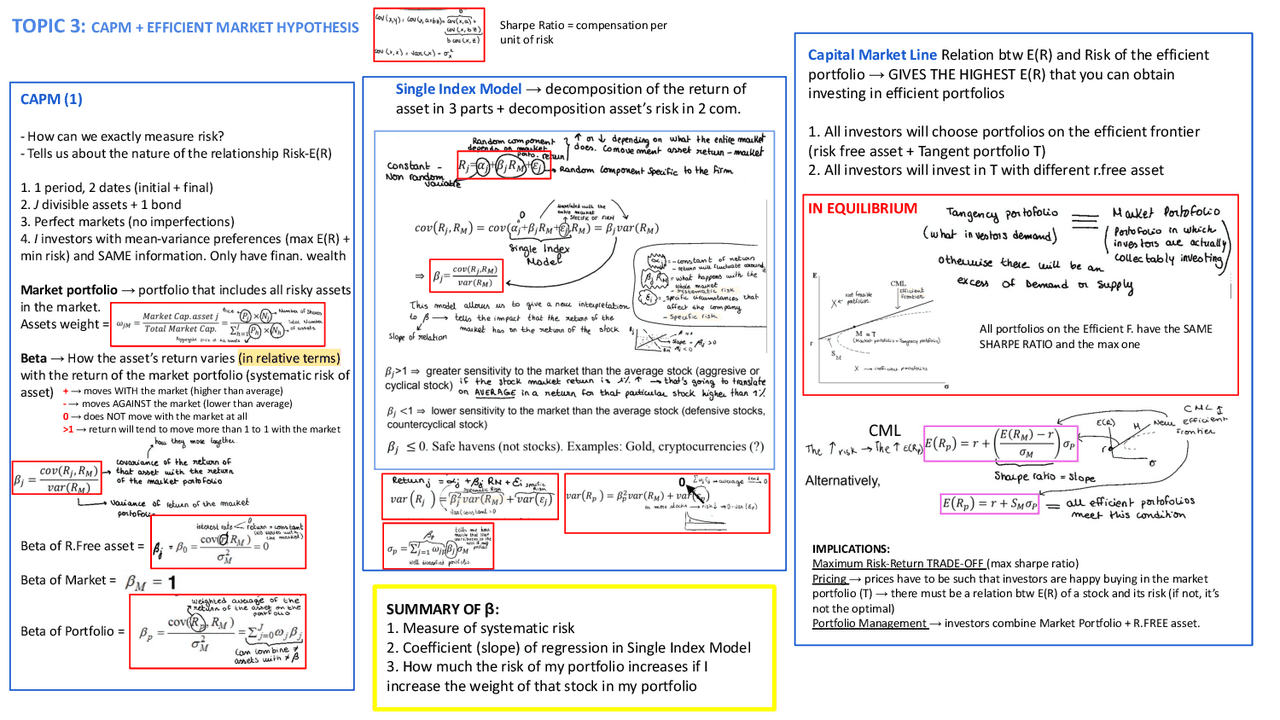 TOPIC 3: CAPM + EFFICIENT MARKET HYPOTHESIS
cov(x,y) = cov(x,a+bz) = cov(x,a) +
0
cov(x,bz)
b cov(x,z)
cov(x,x) = var(x) = σ²x
Sharpe Ratio = compensation per
unit of risk
CAPM (1)
- How can we exactly measure risk?
- Tells us about the nature of the relationship Risk-E(R)
1. 1 period, 2 dates (initial + final)
2. J divisible assets + 1 bond
3. Perfect markets (no imperfections)
4. I investors with mean-variance preferences (max E(R) +
min risk) and SAME information. Only have finan. wealth
Market portfolio → portfolio that includes all risky assets
in the market.
Assets weight = ωjM = Market Cap. asset j / Total Market Cap. = (Pj)×(Nj) / Σ(Ph)×(Nh)
Price
Number of shares
Total Number of assets
Beta → How the asset's return varies (in relative terms)
with the return of the market portfolio (systematic risk of
asset)
+ → moves WITH the market (higher than average)
- → moves AGAINST the market (lower than average)
0 → does NOT move with the market at all
>1 → return will tend to move more than 1 to 1 with the market
how they move together
βj = cov(Rj, RM) / var(RM)
covariance of the return of
that asset with the return
of the market portfolio
variance of return of the market
portfolio
Beta of R.Free asset = βj = β0 = cov(r, RM) / σ²M = 0
interest rate
return = constant
Beta of Market = βM = 1
Beta of Portfolio = βp = cov(Rp, RM) / σ²M = Σ J j=0 ωjβj
weighted average of the
return of the asset on the
portfolio
Can combine ≠
assets with ≠ β
Single Index Model → decomposition of the return of
asset in 3 parts + decomposition asset's risk in 2 com.
Random component
depends on market
porto. return
↑ or ↓ depending on what the entire market
does. Comovement asset return - market
Constant -
Non random
variable
Rj = αj + βjRM + εj
→ Random component specific to the firm
cov(Rj, RM) = cov(αj + βjRM + εj, RM) = βj var(RM)
0
Single Index
Model
⇒ βj = cov(Rj,RM) / var(RM)
αj = - constant of return
- return will fluctuate around
βj RM = - what happens with the
whole market
- systematic risk
εj = - specific circumstances that
affect the company
- specific risk
This model allows us to give a new interpretation
to β → tells the impact that the return of the
market has on the return of the stock
Slope of relation
βj>1 ⇒ greater sensitivity to the market than the average stock (aggresive or
cyclical stock) if the stock market return is 1% ↑ → that's going to translate
on AVERAGE in a return for that particular stock higher than 1%
βj <1 ⇒ lower sensitivity to the market than the average stock (defensive stocks,
countercyclical stock)
βj ≤ 0. Safe havens (not stocks). Examples: Gold, cryptocurrencies (?)
Returnj = αj + βj RM + εj
var(Rj) = βj²var(RM) + var(εj)
specific risk
var(constant) = 0
var(Rp) = βp²var(RM) + var(εp)
0
average
σp = Σ J j=1 ωjp βj σM
well diversified portfolio
SUMMARY OF β:
1. Measure of systematic risk
2. Coefficient (slope) of regression in Single Index Model
3. How much the risk of my portfolio increases if I
increase the weight of that stock in my portfolio
Capital Market Line Relation btw E(R) and Risk of the efficient
portfolio → GIVES THE HIGHEST E(R) that you can obtain
investing in efficient portfolios
1. All investors will choose portfolios on the efficient frontier
(risk free asset + Tangent portfolio T)
2. All investors will invest in T with different r.free asset
IN EQUILIBRIUM
Tangency portofolio = Market Portofolio
(what investors demand)
(Portfolio in which
investors are actually
collectably investing)
otherwise there will be an
excess of Demand or Supply
E
CML
Efficient
frontier
Not feasible
M = T
(Market portfolio=Tangency portfolio)
r
SM
X → inefficient portfolios
σ
All portfolios on the Efficient F. have the SAME
SHARPE RATIO and the max one
CML
The ↑ risk → The ↑ E(Rp)
E(Rp) = r + (E(RM) − r / σM) σP
Sharpe ratio = slope
E(R)
M
r
σ
CML ↓
New efficient
frontier
Alternatively,
E(Rp) = r + SMσP = all efficient portofolios
meet this condition
IMPLICATIONS:
Maximum Risk-Return TRADE-OFF (max sharpe ratio)
Pricing → prices have to be such that investors are happy buying in the market
portfolio (T) → there must be a relation btw E(R) of a stock and its risk (if not, it's
not the optimal)
Portfolio Management → investors combine Market Portfolio + R.FREE asset.